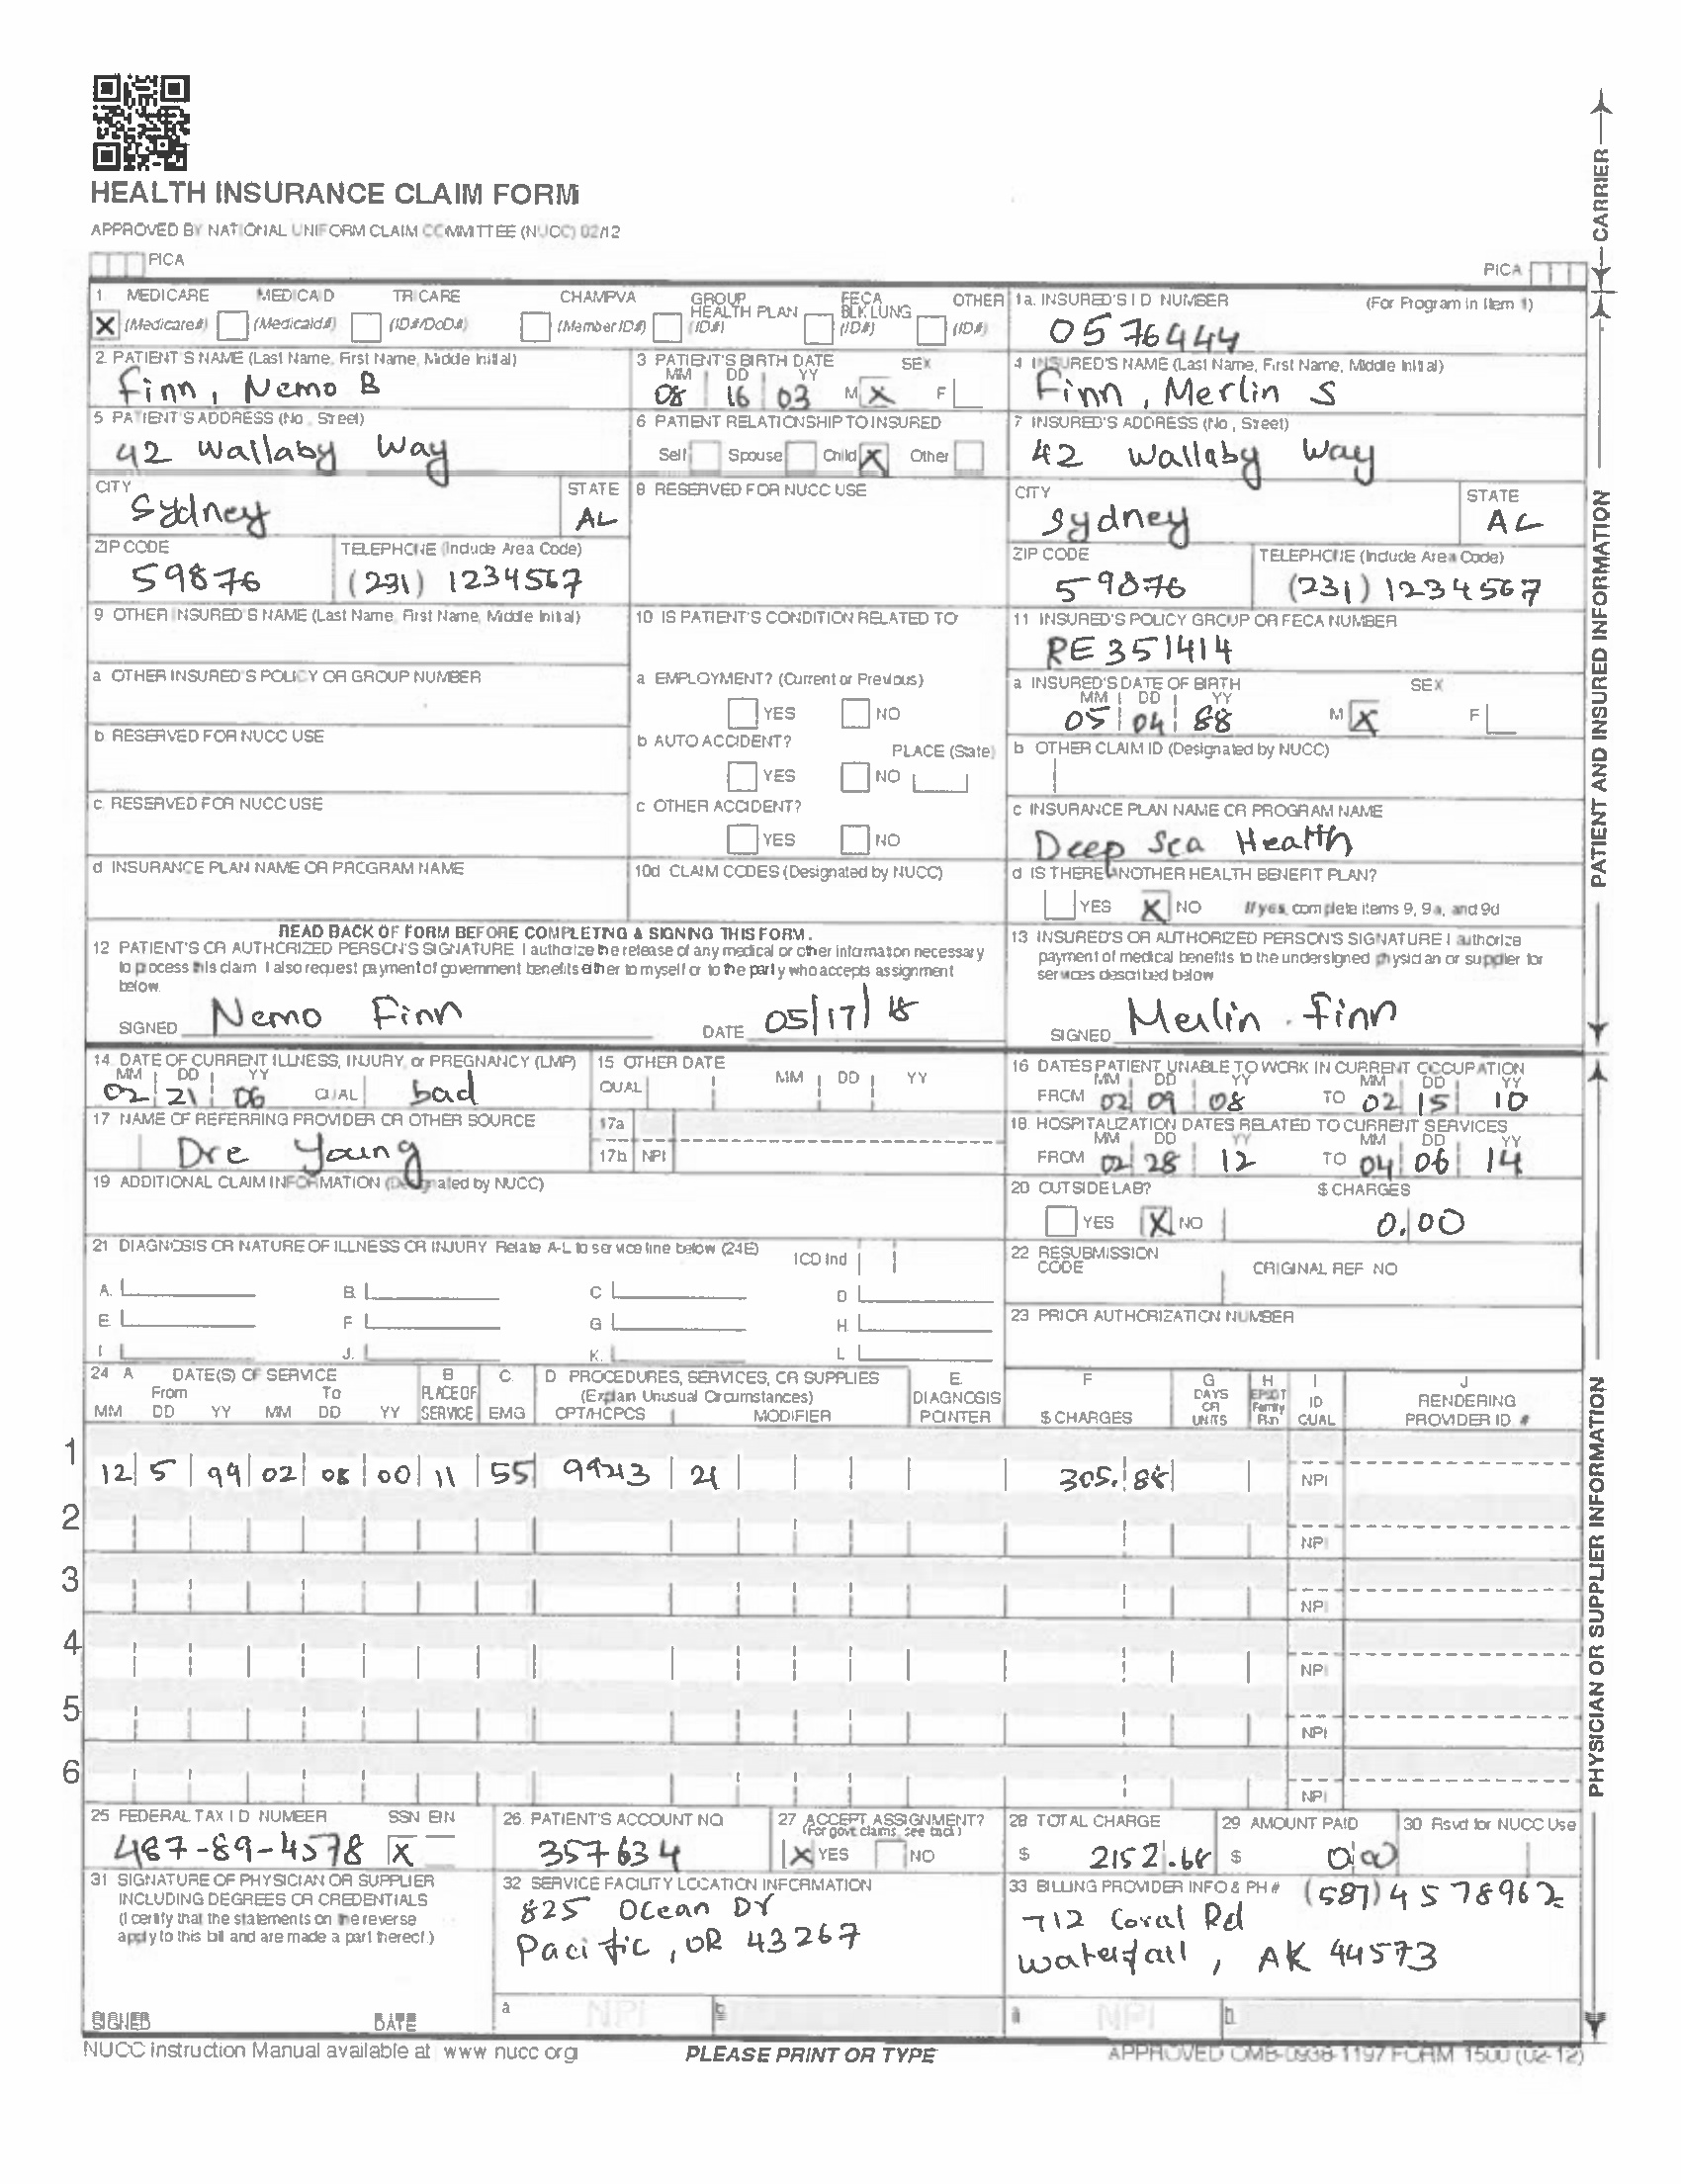 HEALTH INSURANCE CLAIM FORM
APPROVED BY NATIONAL UNIFORM CLAIM COMMITTEE (NUCC) 02/12
PICA
PICA
CARRIER
1 MEDICARE MEDICAID TRICARE CHAMPVA GROUP HEALTH PLAN FECA BLK LUNG OTHER
X (Medicare#) (Medicaid#) (ID#/DoD#) (Member ID#) (ID#) (ID#) (ID#)
1a. INSURED'S I D NUMBER (For Program in Item 1)
0576444
2 PATIENT'S NAME (Last Name, First Name, Middle Initial)
Finn, Nemo B
3 PATIENT'S BIRTH DATE SEX
MM DD YY
08 16 03 M X F
4 INSURED'S NAME (Last Name, First Name, Middle Initial)
Finn, Merlin S
5 PATIENT'S ADDRESS (No , Street)
42 Wallaby Way
6 PATIENT RELATIONSHIP TO INSURED
Self Spouse Child X Other
7 INSURED'S ADDRESS (No , Street)
42 Wallaby Way
CITY STATE
Sydney AL
8 RESERVED FOR NUCC USE
CITY STATE
Sydney AL
ZIP CODE TELEPHONE (Include Area Code)
59876 (231) 1234567
ZIP CODE TELEPHONE (Include Area Code)
59876 (231) 1234567
9 OTHER INSURED'S NAME (Last Name, First Name, Middle Initial)
10 IS PATIENT'S CONDITION RELATED TO
11 INSURED'S POLICY GROUP OR FECA NUMBER
RE 351414
a OTHER INSURED'S POLICY OR GROUP NUMBER
a EMPLOYMENT? (Current or Previous)
YES NO
a INSURED'S DATE OF BIRTH SEX
MM DD YY
05 04 88 M X F
b RESERVED FOR NUCC USE
b AUTO ACCIDENT? PLACE (State)
YES NO
b OTHER CLAIM ID (Designated by NUCC)
c. RESERVED FOR NUCC USE
c OTHER ACCIDENT?
YES NO
c INSURANCE PLAN NAME OR PROGRAM NAME
Deep Sea Health
d INSURANCE PLAN NAME OR PROGRAM NAME
10d CLAIM CODES (Designated by NUCC)
d IS THERE ANOTHER HEALTH BENEFIT PLAN?
YES X NO If yes, complete items 9, 9a, and 9d
PATIENT AND INSURED INFORMATION
READ BACK OF FORM BEFORE COMPLETING & SIGNING THIS FORM.
12 PATIENT'S OR AUTHORIZED PERSON'S SIGNATURE I authorize the release of any medical or other information necessary
to process this claim I also request payment of government benefits either to myself or to the party who accepts assignment
below.
SIGNED Nemo Finn DATE 05/17/18
13 INSURED'S OR AUTHORIZED PERSON'S SIGNATURE I authorize
payment of medical benefits to the undersigned physician or supplier for
services described below
SIGNED Merlin . Finn
14 DATE OF CURRENT ILLNESS, INJURY, or PREGNANCY (LMP)
MM DD YY
02 21 06 QUAL bad
15 OTHER DATE
QUAL MM DD YY
16 DATES PATIENT UNABLE TO WORK IN CURRENT OCCUPATION
MM DD YY MM DD YY
FROM 02 09 08 TO 02 15 10
17 NAME OF REFERRING PROVIDER OR OTHER SOURCE
Dre Young
17a
17b NPI
18. HOSPITALIZATION DATES RELATED TO CURRENT SERVICES
MM DD YY MM DD YY
FROM 02 28 12 TO 04 06 14
19 ADDITIONAL CLAIM INFORMATION (Designated by NUCC)
20 OUTSIDE LAB? $ CHARGES
YES X NO 0.00
21 DIAGNOSIS OR NATURE OF ILLNESS OR INJURY Relate A-L to service line below (24E) ICD Ind
A. B. C D
E F G H.
I J. K. L
22 RESUBMISSION CODE ORIGINAL REF NO
23 PRIOR AUTHORIZATION NUMBER
24 A DATE(S) OF SERVICE B C. D PROCEDURES, SERVICES, OR SUPPLIES E. F G H I J
From To PLACE OF (Explain Unusual Circumstances) DIAGNOSIS DAYS OR UNITS EPSDT Family Plan ID QUAL RENDERING
MM DD YY MM DD YY SERVICE EMG CPT/HCPCS MODIFIER POINTER $ CHARGES PROVIDER ID #
1 12 5 99 02 08 00 11 55 99213 21 305.88 NPI
2 NPI
3 NPI
4 NPI
5 NPI
6 NPI
25 FEDERAL TAX I D NUMBER SSN EIN
487-89-4578 X
26 PATIENT'S ACCOUNT NO
357634
27 ACCEPT ASSIGNMENT?
(For govt claims, see back)
X YES NO
28 TOTAL CHARGE
$ 2152.68
29 AMOUNT PAID
$ 0 00
30 Rsvd for NUCC Use
31 SIGNATURE OF PHYSICIAN OR SUPPLIER
INCLUDING DEGREES OR CREDENTIALS
(I certify that the statements on the reverse
apply to this bill and are made a part thereof.)
SIGNED DATE
32 SERVICE FACILITY LOCATION INFORMATION
825 Ocean Dr
Pacific, OR 43267
a NPI b
33 BILLING PROVIDER INFO & PH # (587) 4578962
712 Coral Rd
Waterfall, AK 44573
a NPI b
PHYSICIAN OR SUPPLIER INFORMATION
NUCC Instruction Manual available at www nucc org
PLEASE PRINT OR TYPE
APPROVED OMB-0938-1197 FORM 1500 (02-12)